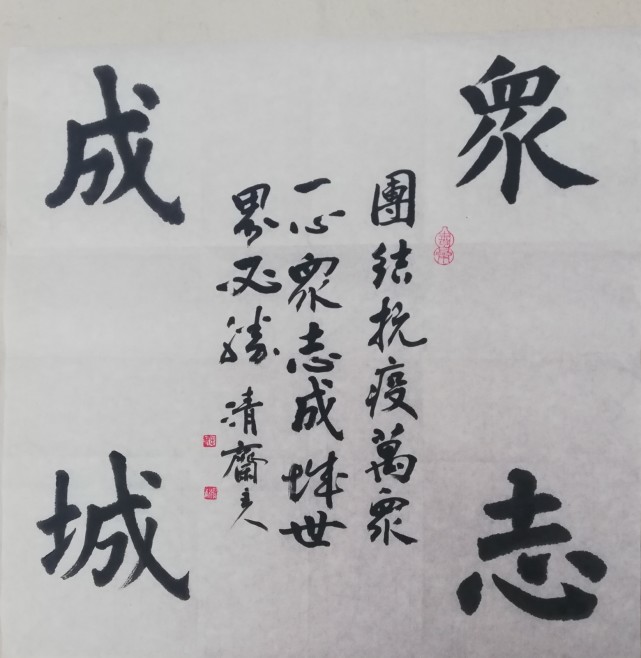 眾志
成城
團結抗疫萬眾
一心眾志成城世
界必勝 清齋主人